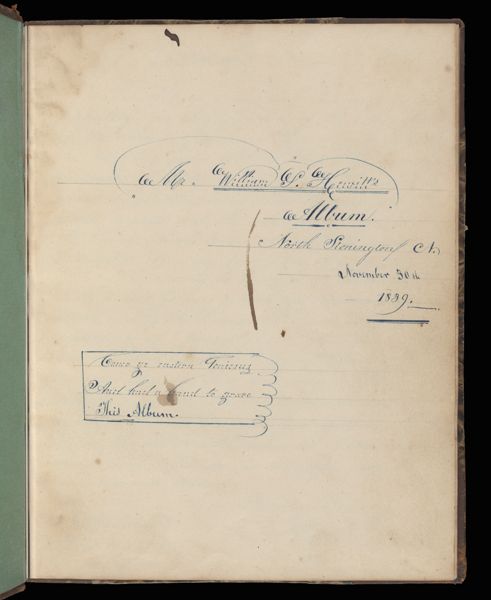 Mr. William S. Hewitt's
Album.
North Stonington Ct.
November 30th
1839.
Come ye eastern Geniuses
And lend a hand to grace
This Album.